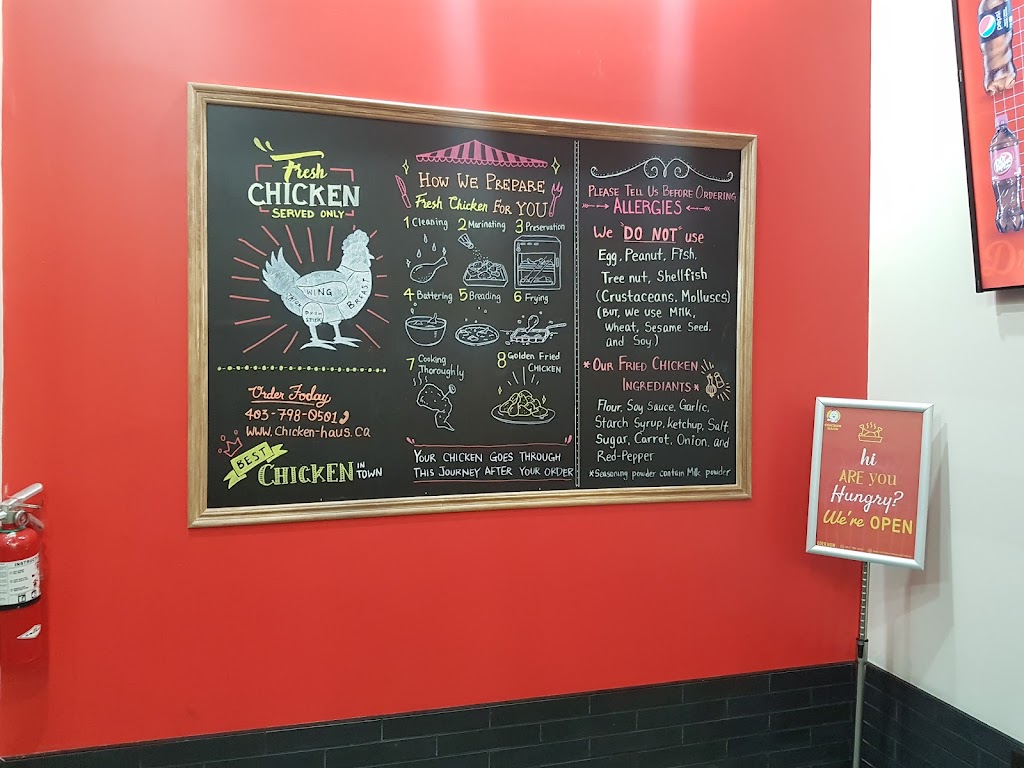 Fresh
CHICKEN
SERVED ONLY
WING
BREAST
THIGH
DRUM
STICK
Order Today
403-798-0501
WWW.Chicken-haus.ca
BEST
CHICKEN IN TOWN
HOW WE PREPARE
Fresh Chicken For YOU
1 Cleaning 2 Marinating 3 Preservation
4 Battering 5 Breading 6 Frying
7 Cooking Thoroughly
8 Golden Fried CHICKEN
YOUR CHICKEN GOES THROUGH
THIS JOURNEY AFTER YOUR ORDER
PLEASE TELL US BEFORE ORDERING
ALLERGIES
We "DO NOT" use
Egg, Peanut, Fish,
Tree nut, Shellfish
(Crustaceans, Molluscs)
(But, we use Milk,
Wheat, Sesame Seed,
and Soy.)
*OUR FRIED CHICKEN
INGREDIANTS*
Flour, Soy Sauce, Garlic,
Starch Syrup, Ketchup, Salt,
Sugar, Carrot, Onion, and
Red-Pepper
*Seasoning powder contain Milk powder
hi
ARE you
Hungry?
We're OPEN
pepsi
Dr
INSTRUCT